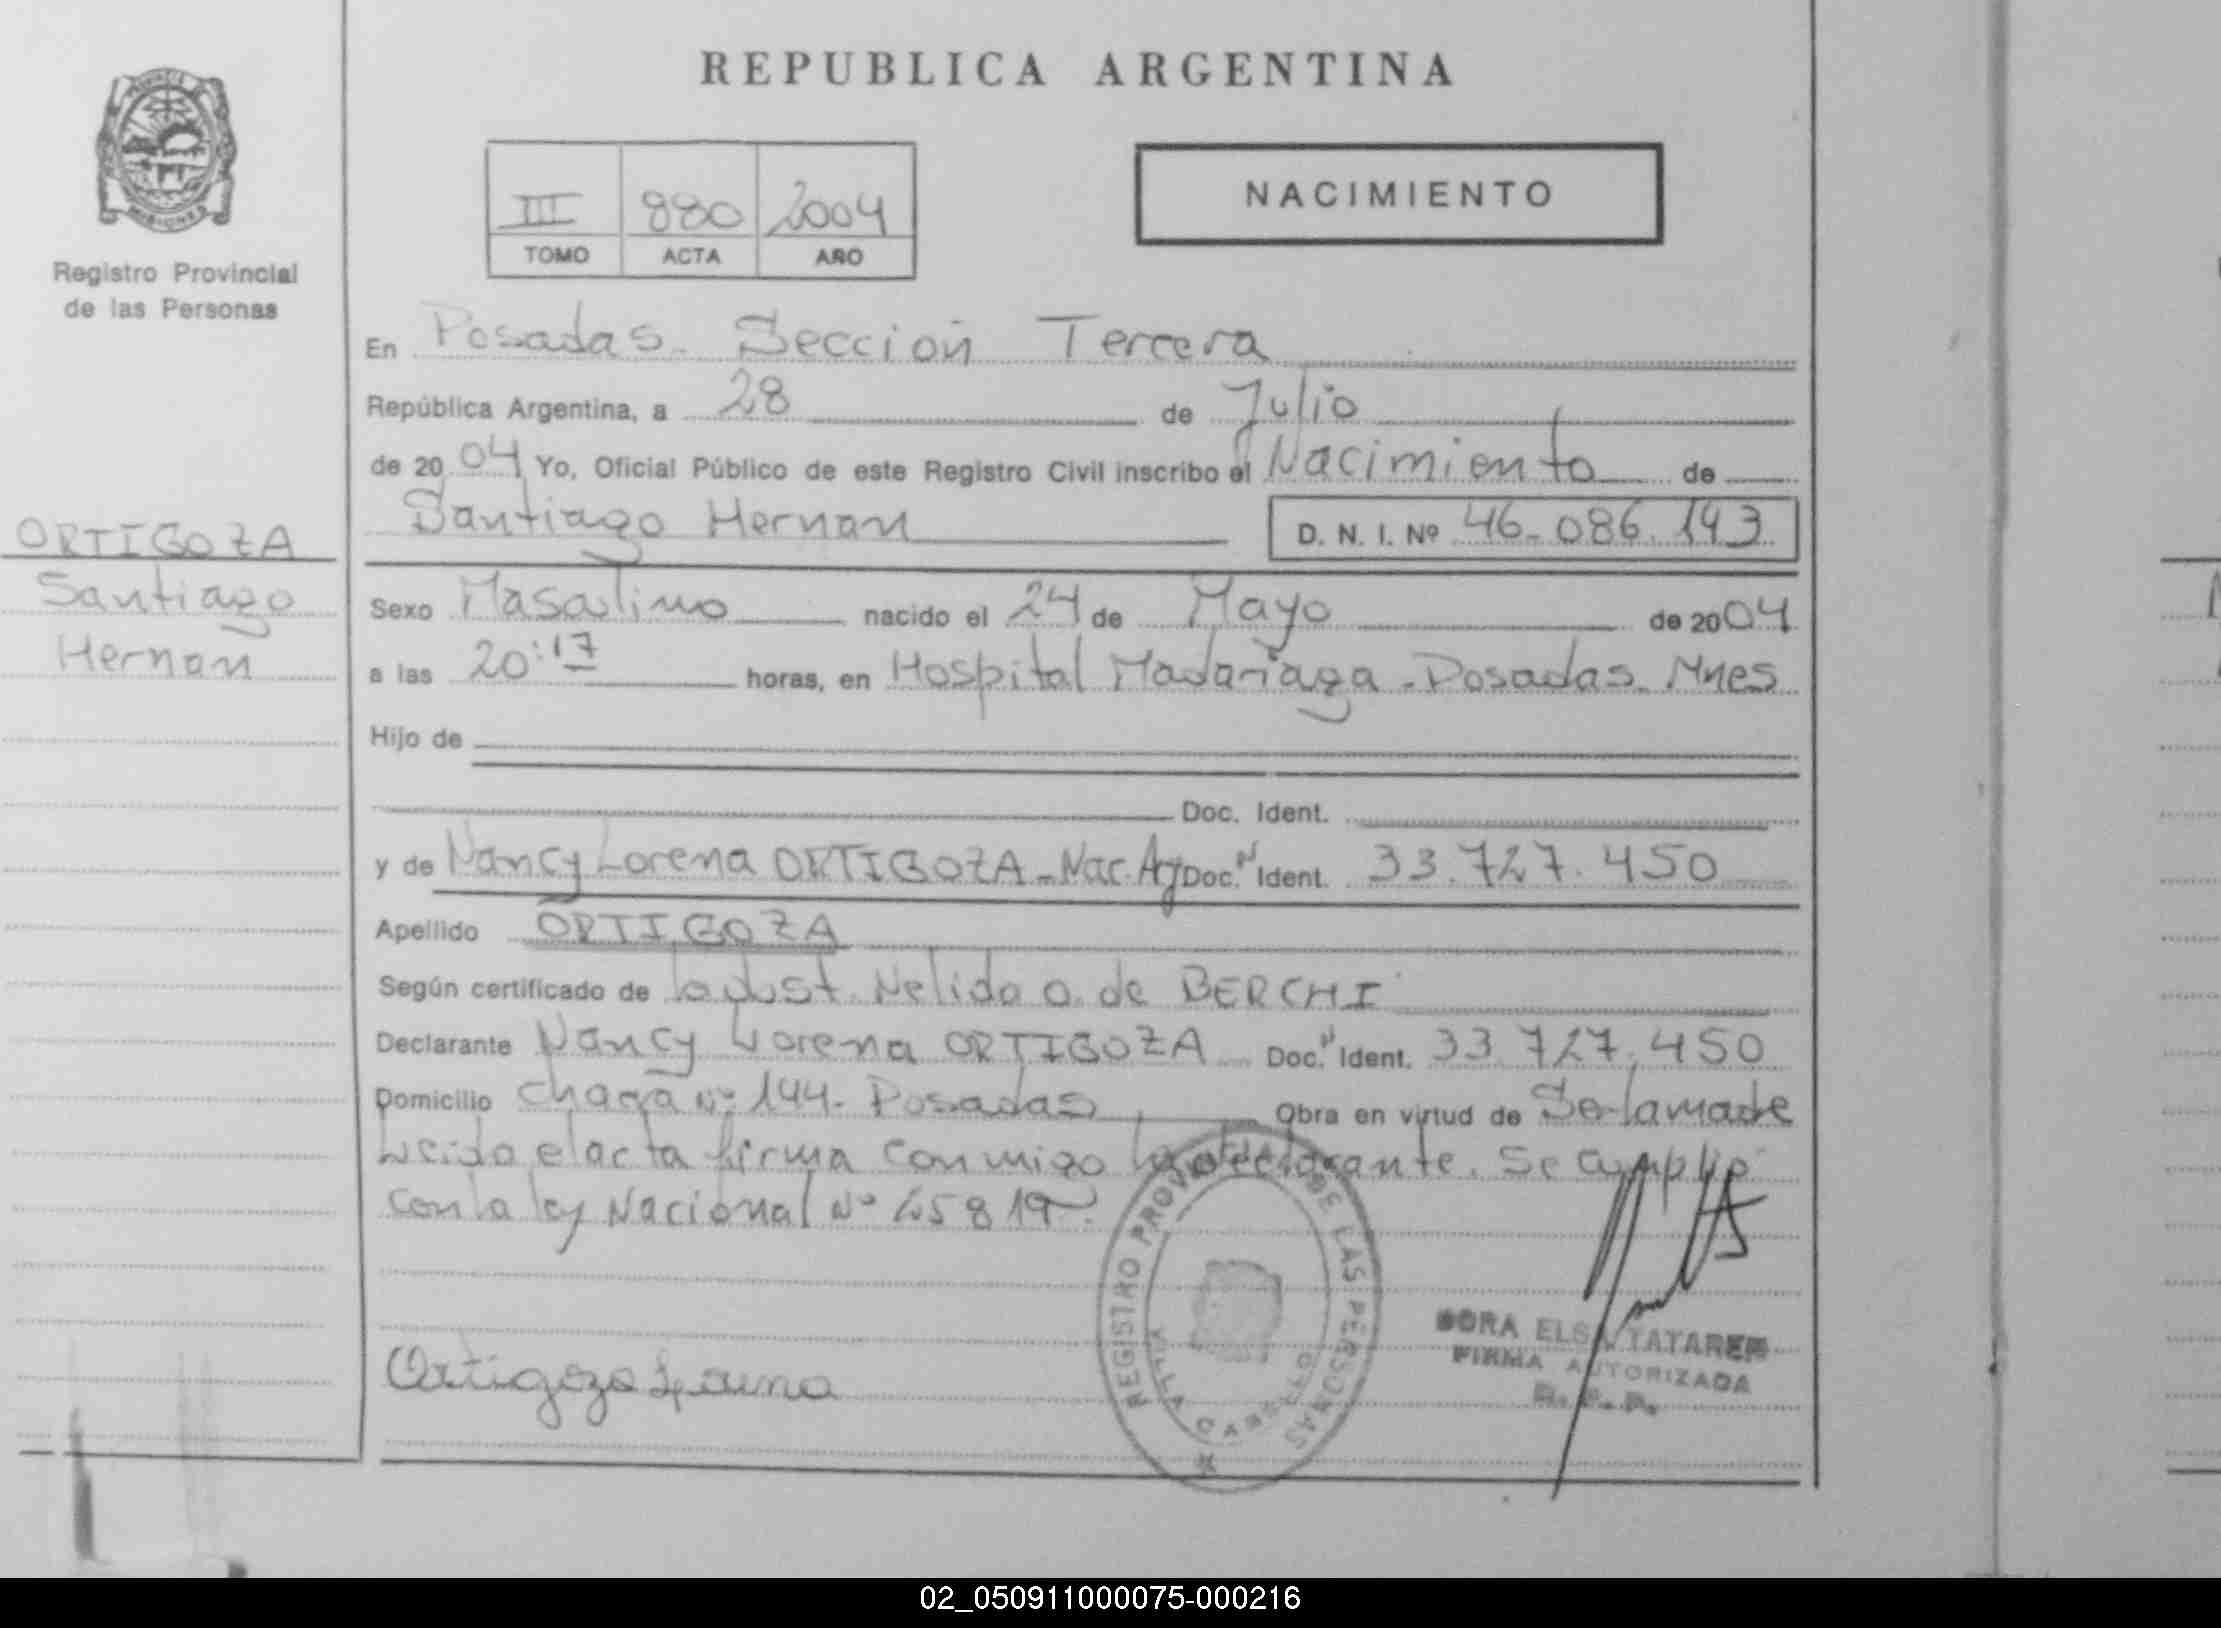 REPUBLICA ARGENTINA
PROVINCIA DE MISIONES
Registro Provincial
de las Personas
III 880 2004
TOMO ACTA AÑO
NACIMIENTO
En Posadas - Sección Tercera
República Argentina, a 28 de Julio
de 2004 Yo, Oficial Público de este Registro Civil inscribo el Nacimiento de
Santiago Hernan D. N. I. Nº 46.086.143
ORTIGOZA
Santiago
Hernan
Sexo Masculino nacido el 24 de Mayo de 2004
a las 20:17 horas, en Hospital Madariaga - Posadas - Mnes
Hijo de
Doc. Ident.
y de Nancy Lorena ORTIGOZA - Nac. Arg Doc. N Ident. 33.727.450
Apellido ORTIGOZA
Según certificado de la Obst. Nelida O. de BERCHI
Declarante Nancy Lorena ORTIGOZA Doc. N Ident. 33.727.450
Domicilio Chacra Nº 144 - Posadas Obra en virtud de Ser la madre
Leida el acta firma conmigo la declarante. Se cumplio
con la ley Nacional Nº 25819
REGISTRO PROVINCIAL DE LAS PERSONAS
VILLA CABELLO
Ortigoza Lorena
DORA ELSA TATAREN
FIRMA AUTORIZADA
R. P. P.
02_050911000075-000216